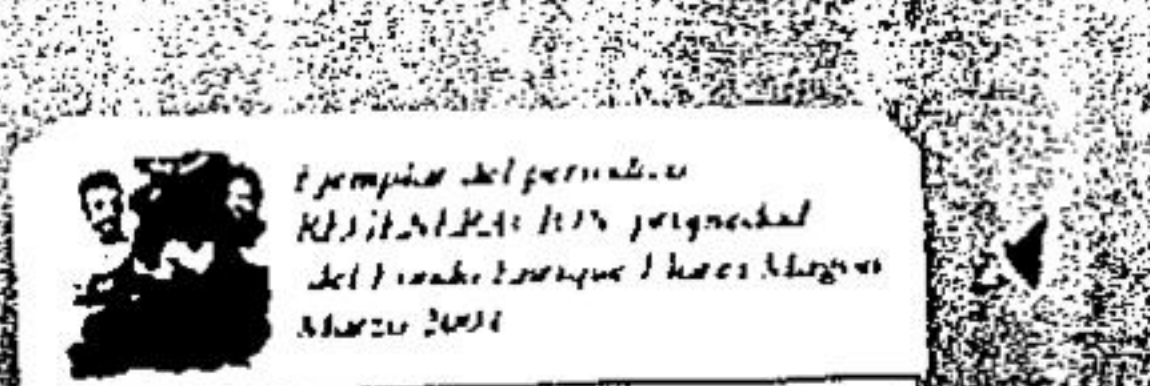 Ejemplar del periodico
REGENERACION propiedad
del Fondo Enrique Flores Magon
Marzo